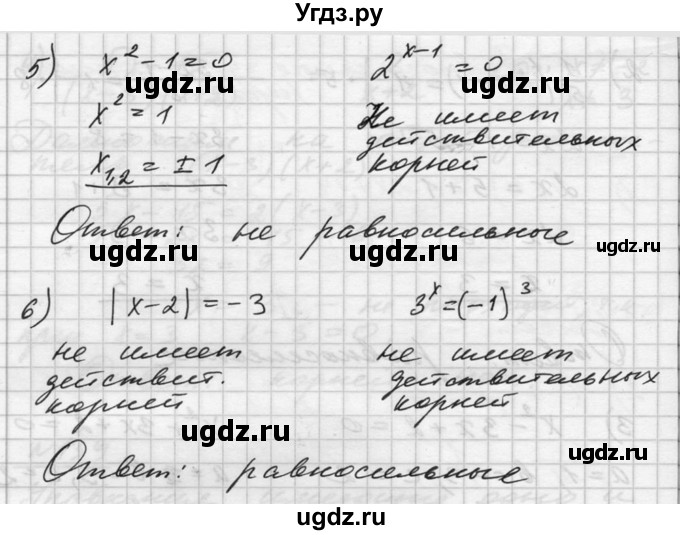 Угдз.ру
5) x² - 1 = 0 2^(x-1) = 0
ugdz.ru ugdz.ru
x² = 1 Не имеет
действительных
x₁,₂ = ± 1 корней
ugdz.ru ugdz.ru
Ответ: не равносильные
ugdz.ru ugdz.ru
6) |x-2| = -3 3^x = (-1)³
не имеет не имеет
действит. действительных
корней корней
ugdz.ru ugdz.ru
ugdz.ru
Ответ: равносильные
ugdz.ru ugdz.ru
ugdz.ru